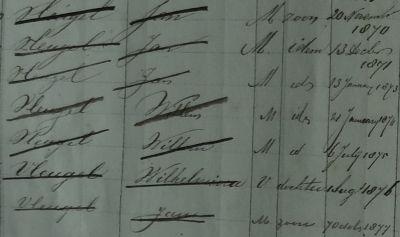 Vleugel Jan M zoon 20 November 1870
Vleugel Jan M. idem 13 December 1871
Vleugel Jan M id 13 January 1873
Vleugel Willem M id 21 January 1874
Vleugel Willem M id 6 July 1875
Vleugel Wilhelmina V dochter 1876
Vleugel Jan M zoon 7 Octob 1877